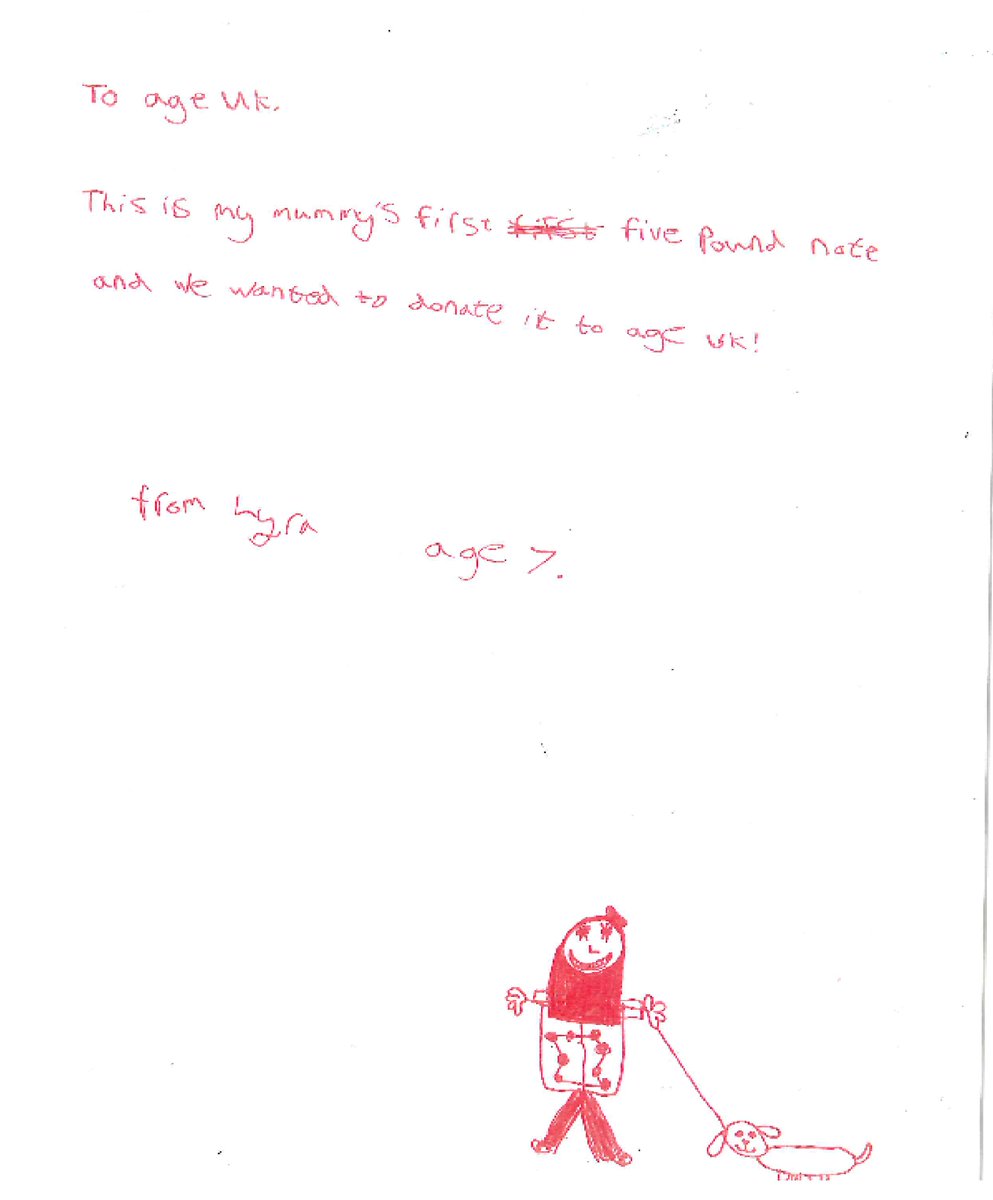 To age UK.
This is my mummy's first first five Pound note
and we wanted to donate it to age UK!
from Lyra
age 7.